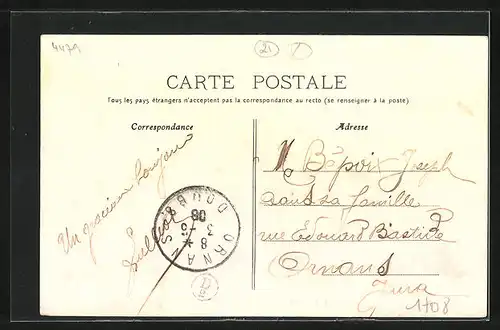 4479
21
CARTE POSTALE
Tous les pays étrangers n'acceptent pas la correspondance au recto (se renseigner à la poste)
Correspondance
Adresse
Un gracieux bonjour
ORNANS
DOUBS
8
3
08
Bépoix Joseph
dans sa famille
rue Edouard Bastide
Ornans
Jura
1708